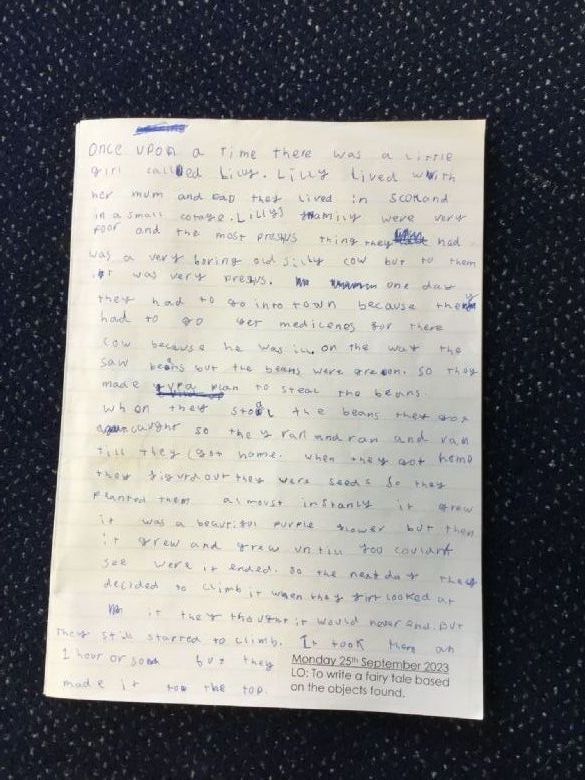 once upon a Time there was a little
girl called Lilly. Lilly Lived with
her mum and Dad they Lived in Scotland
in a small cotage. Lillys family were very
poor and the most presius thing they had
was a very boring old silly cow but to them
it was very presus. one day
they had to go into town because they
had to go get medicenes for there
cow because he was ill. on the way the
saw beans but the beans were green. so they
made a plan to steal the beans.
when they stole the beans they got
caught so they ran and ran and ran
till they got home. when they got home
they figurd out they were seeds so they
Planted them almoust instanly it grew
it was a beautiful purple flower but then
it grew and grew until you couldnt
see were it ended. so the next day they
decided to climb it when they firt looked at
it they thought it would never end. But
They still started to climb. It took them an
1 hour or so but they
made it too the top.
Monday 25th September 2023
LO: To write a fairy tale based
on the objects found.